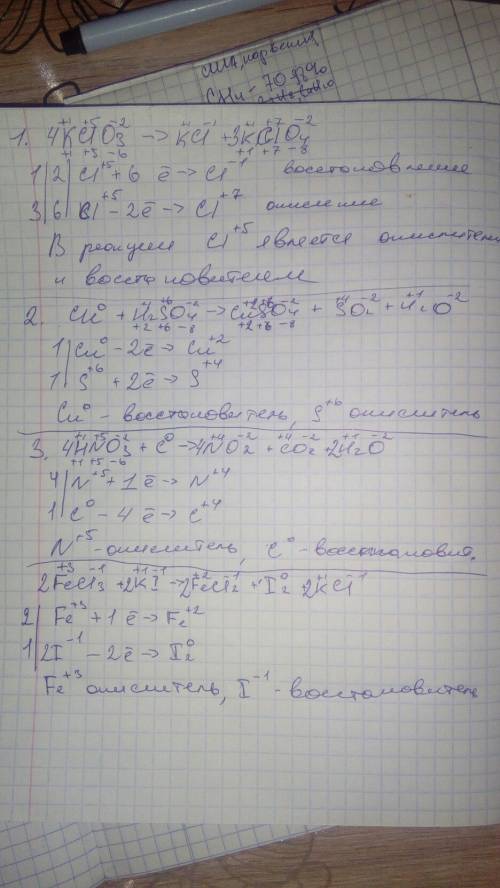 CH₄ - 70
1. 4K⁺¹Cl⁺⁵O₃⁻² → K⁺¹Cl⁻¹ + 3K⁺¹Cl⁺⁷O₄⁻²
+1 +5 -6 +1 +7 -8
1|2| Cl⁺⁵ + 6 ē → Cl⁻¹ восстановление
3|6| Cl⁺⁵ - 2ē → Cl⁺⁷ окисление
В реакции Cl⁺⁵ является окислителем
и восстановителем
2. Cu⁰ + H₂⁺¹S⁺⁶O₄⁻² → Cu⁺²S⁺⁶O₄⁻² + S⁺⁴O₂⁻² + H₂⁺¹O⁻²
+2 +6 -8 +2 +6 -8
1| Cu⁰ - 2ē → Cu⁺²
1| S⁺⁶ + 2ē → S⁺⁴
Cu⁰ - восстановитель, S⁺⁶ окислитель
3. 4H⁺¹N⁺⁵O₃⁻² + C⁰ → 4N⁺⁴O₂⁻² + C⁺⁴O₂⁻² + 2H₂⁺¹O⁻²
+1 +5 -6
4| N⁺⁵ + 1ē → N⁺⁴
1| C⁰ - 4ē → C⁺⁴
N⁺⁵ - окислитель, C⁰ - восстановит.
2Fe⁺³Cl₃⁻¹ + 2K⁺¹I⁻¹ → 2Fe⁺²Cl₂⁻¹ + I₂⁰ 2K⁺¹Cl⁻¹
2| Fe⁺³ + 1ē → Fe⁺²
1| 2I⁻¹ - 2ē → I₂⁰
Fe⁺³ окислитель, I⁻¹ - восстановитель